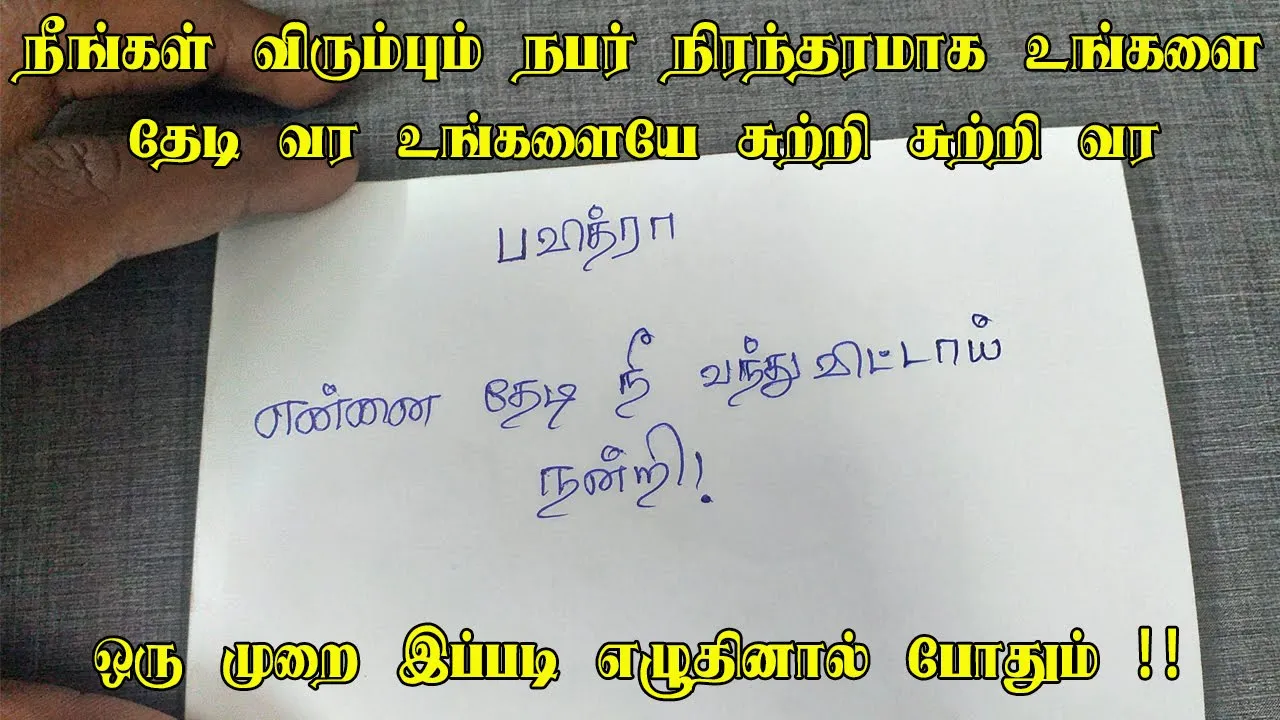 நீங்கள் விரும்பும் நபர் நிரந்தரமாக உங்களை
தேடி வர உங்களையே சுற்றி சுற்றி வர
பவித்ரா
என்னை தேடி நீ வந்து விட்டாய்
நன்றி!
ஒரு முறை இப்படி எழுதினால் போதும் !!